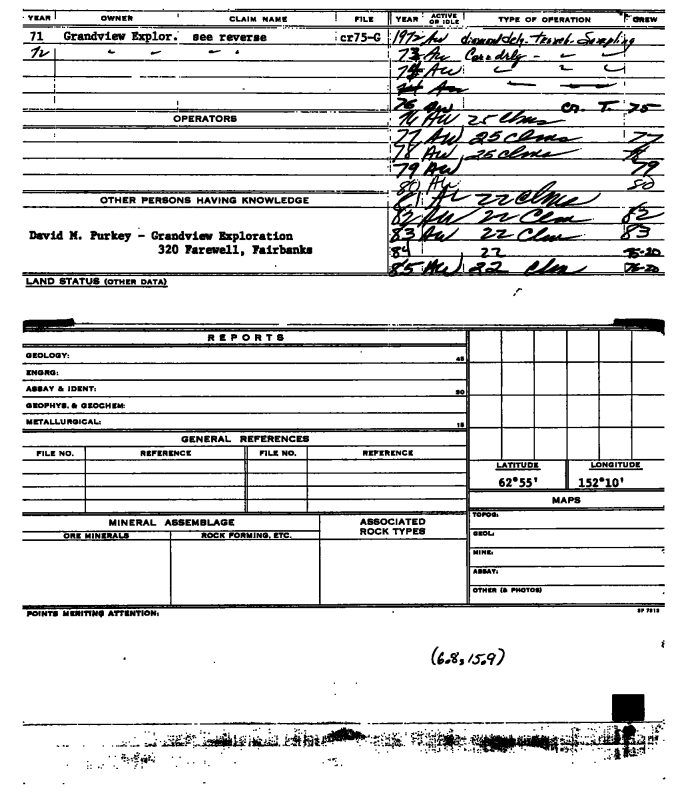 YEAR OWNER CLAIM NAME FILE YEAR ACTIVE OR IDLE TYPE OF OPERATION CREW
71 Grandview Explor. see reverse cr75-G 1972 AW diamond drlg. Trench. Sampling
72 " " " 73 AW Core drlg - " "
74 AW " " "
76 AW Cr. T. 75
OPERATORS 76 AW 25 Clms
77 AW 25 clms 77
78 AW 25 clms
79 AW 79
80 AW 80
OTHER PERSONS HAVING KNOWLEDGE 81 22 Clms
82 AW 22 Clm 82
David M. Purkey - Grandview Exploration 83 AW 22 Clm 83
320 Farewell, Fairbanks 84 22 75-20
85 AW 22 Clm 76-20
LAND STATUS (OTHER DATA)
REPORTS
GEOLOGY: 45
ENGRG:
ASSAY & IDENT: 30
GEOPHYS. & GEOCHEM:
METALLURGICAL: 15
GENERAL REFERENCES
FILE NO. REFERENCE FILE NO. REFERENCE
LATITUDE LONGITUDE
62°55' 152°10'
MAPS
MINERAL ASSEMBLAGE ASSOCIATED ROCK TYPES
ORE MINERALS ROCK FORMING, ETC.
TOPOG:
GEOL:
MINE:
ASSAY:
OTHER (& PHOTOS)
POINTS MERITING ATTENTION: SP 7818
(6.8, 15.9)